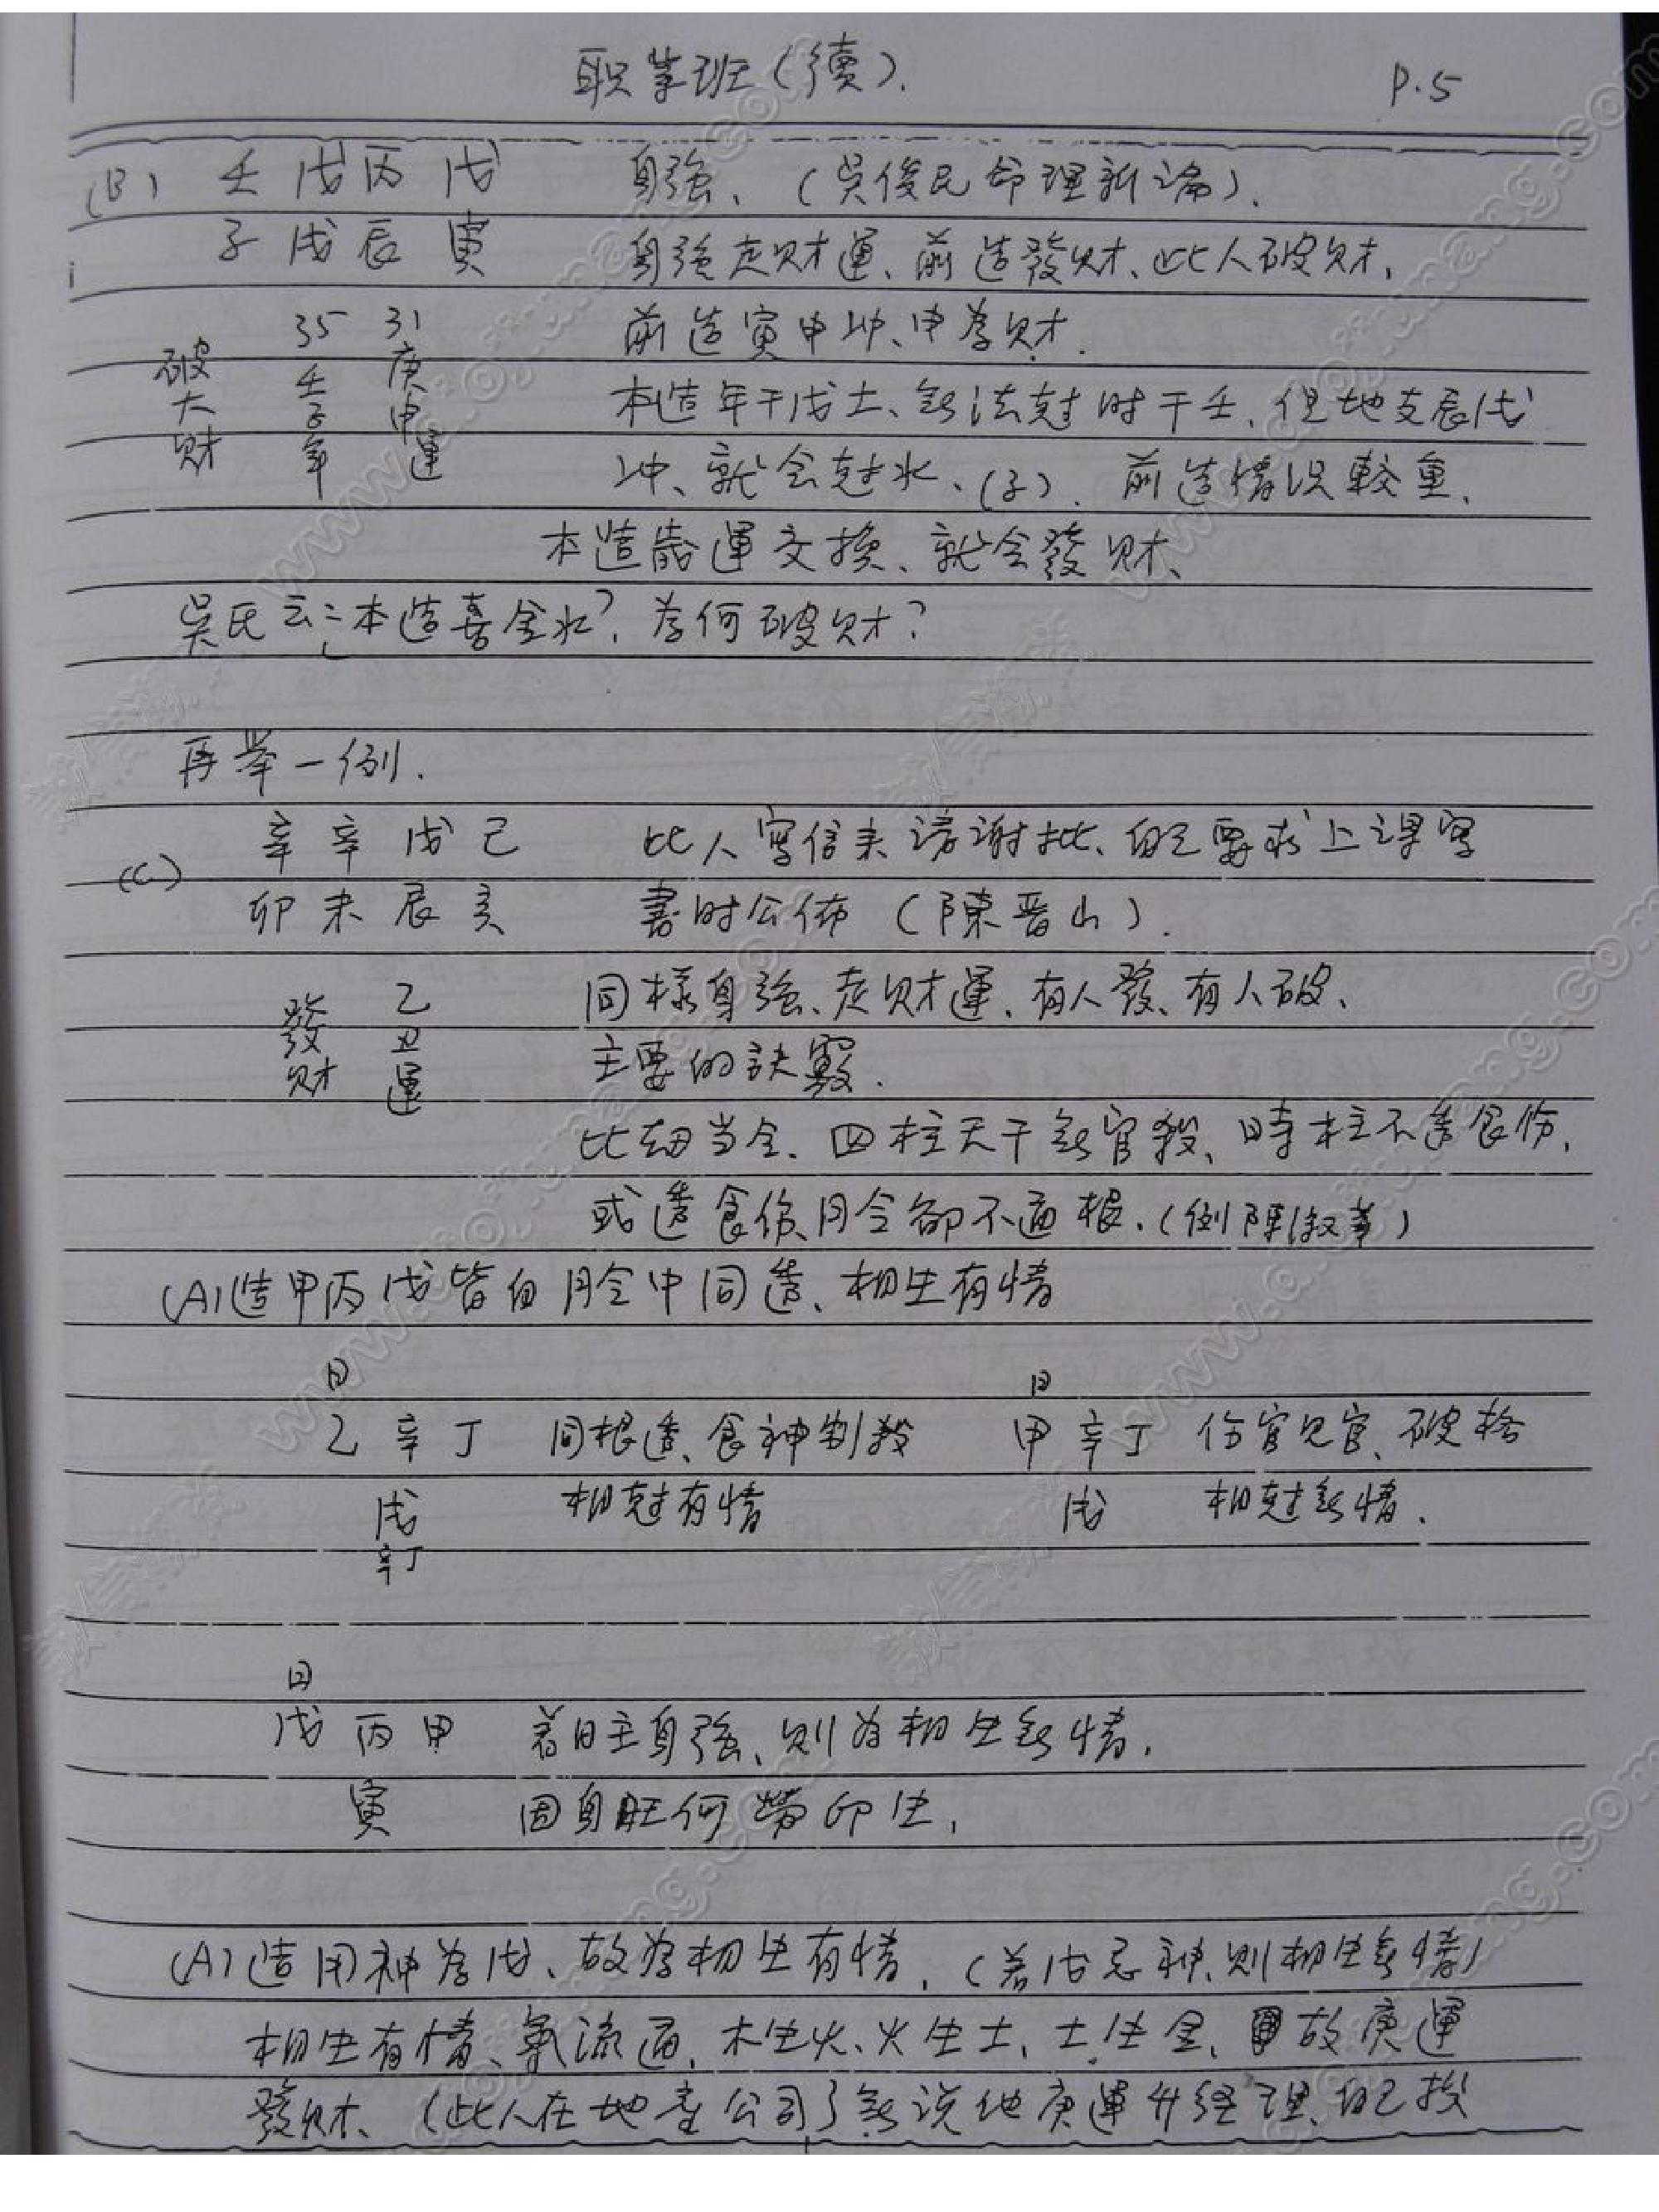 职業班(續). P.5
(B) 壬 戊 丙 戊 身強、(吳俊民命理新論).
子 戌 辰 寅 身強走财運、前造發财、此人破财.
35 31 前造寅申冲、申為财.
破大财 壬子年 庚申運 本造年干戊土、無法尅时干壬、但地支辰戌
冲、就会尅水、(子). 前造情况較重.
本造歲運交换、就会發财、
吳氏云:本造喜金水?為何破财?
再举一例.
(C) 辛 辛 戊 己 此人寫信来谤謝批、自己要求上课寫
卯 未 辰 亥 書时公佈(陳晋山).
發财 乙丑運 同樣身強、走财運、有人發、有人破、
主要的訣竅.
比劫当令、四柱天干無官殺、時柱不透食伤,
或透食伤、月令卻不通根.(倒陳叙事)
(A)造甲丙戊皆自月令中同透、相生有情
日 日
乙 辛 丁 同根透、食神制殺 甲 辛 丁 伤官見官、破格
戌 相尅有情 戌 相尅無情.
辛丁
日
戊 丙 甲 若日主身強、则為相生無情.
寅 因身旺何勞印生.
(A)造用神為戊、故為相生有情.(若戊忌神、则相生無情)
相生有情、氣流通、木生火、火生土、土生金、故庚運
發财、(此人在地產公司)無説他庚運升经理、自己投